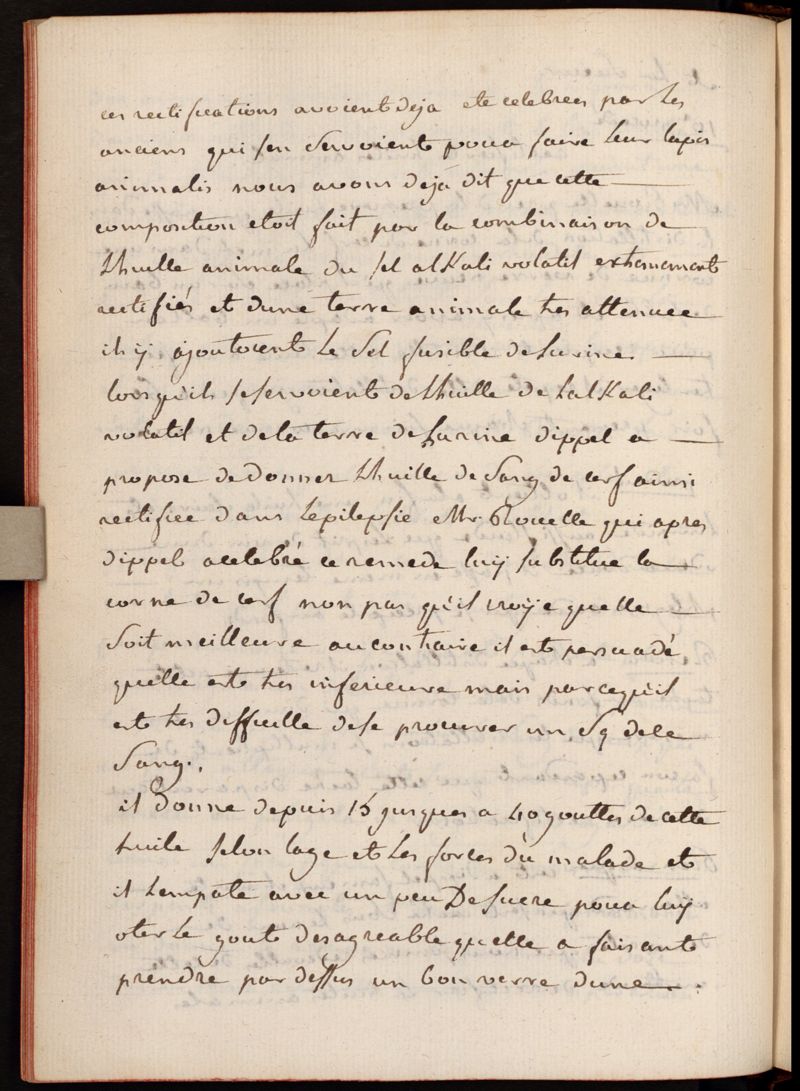 ces rectifications avoient deja ete celebrees par les
anciens qui s'en servoient pour faire leur lapis
animalis nous avons dejà dit que cette
composition etoit fait par la combinaison de
Lhuille animale du sel alKali volatil extremement
rectifiés et dune terre animale tres attenuee
ils y ajoutoient Le Sel fusible de Lurine
lorsquils se servoient de Lhuille de LalKali
volatil et de la terre de Lurine dippel a
propose de donner Lhuille de Sang de cerf ainsi
rectifiee dans Lepilepsie Mr. Rouelle qui apres
dippel a celebré ce remede luy substitue la
corne de cerf non pas quil croye quelle
soit meilleure au contraire il est persuadé
quelle est tres inferieure mais parcequil
est tres difficille de se procurer un de ce
Sang.
il donne depuis 15 jusques a 40 gouttes de cette
huile selon lage et Les forces du malade et
il Lempate avec un peu De sucre pour luy
oter Le gout desagreable quelle a faisant
prendre par dessus un bon verre dune